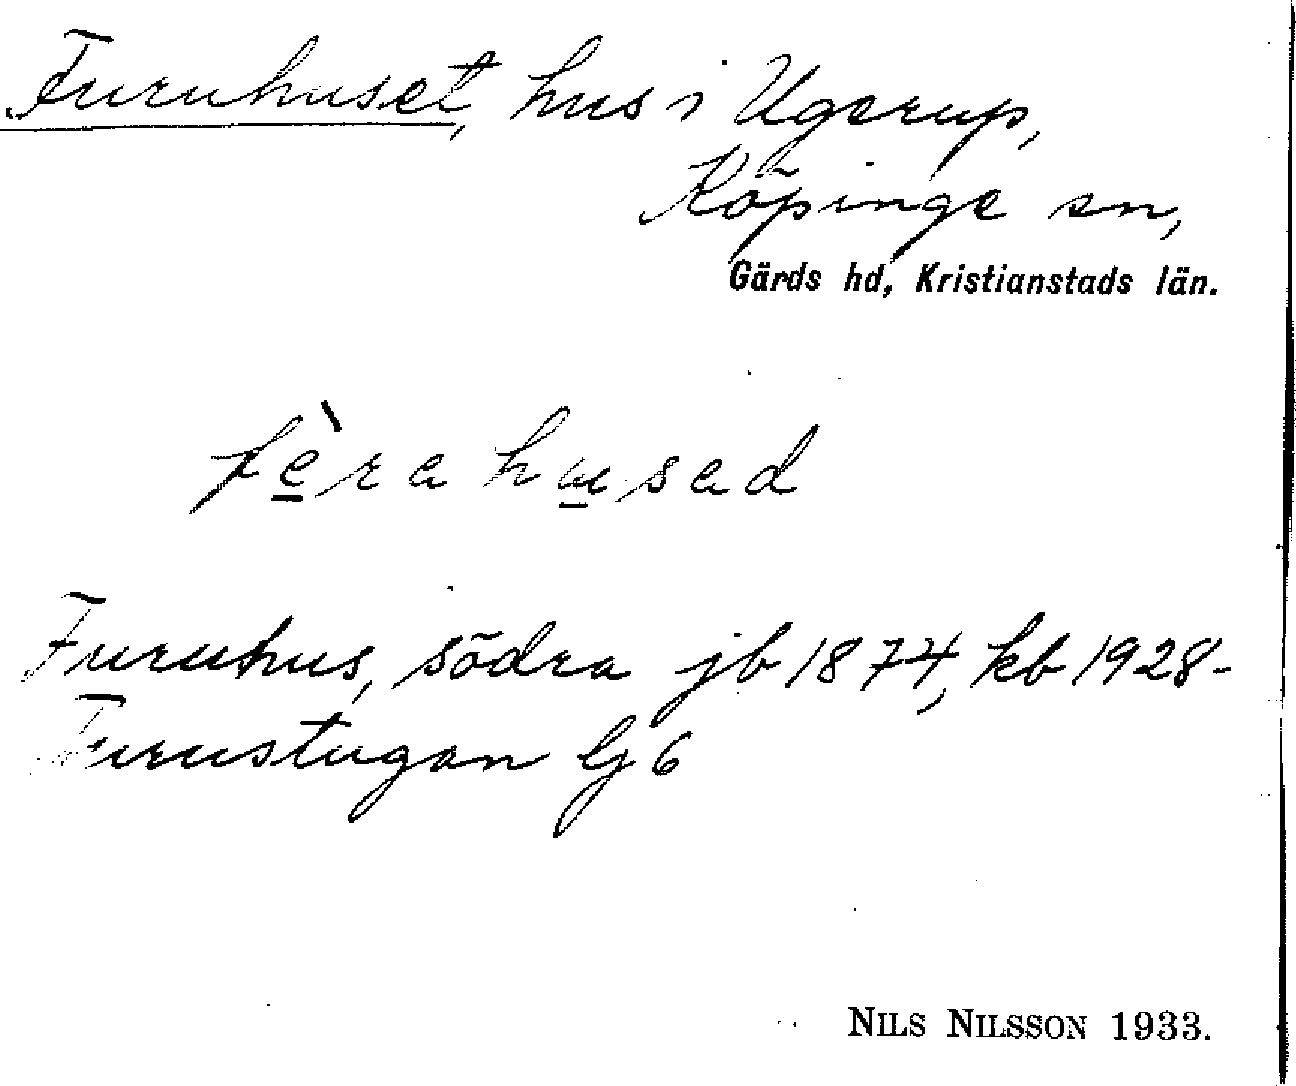 Furuhuset, hus i Ugerup,
Köpinge sn,
Gärds hd, Kristianstads län.
Furuhus, södra jb 1874, kb 1928-
Furustugan lj 6
NILS NILSSON 1933.